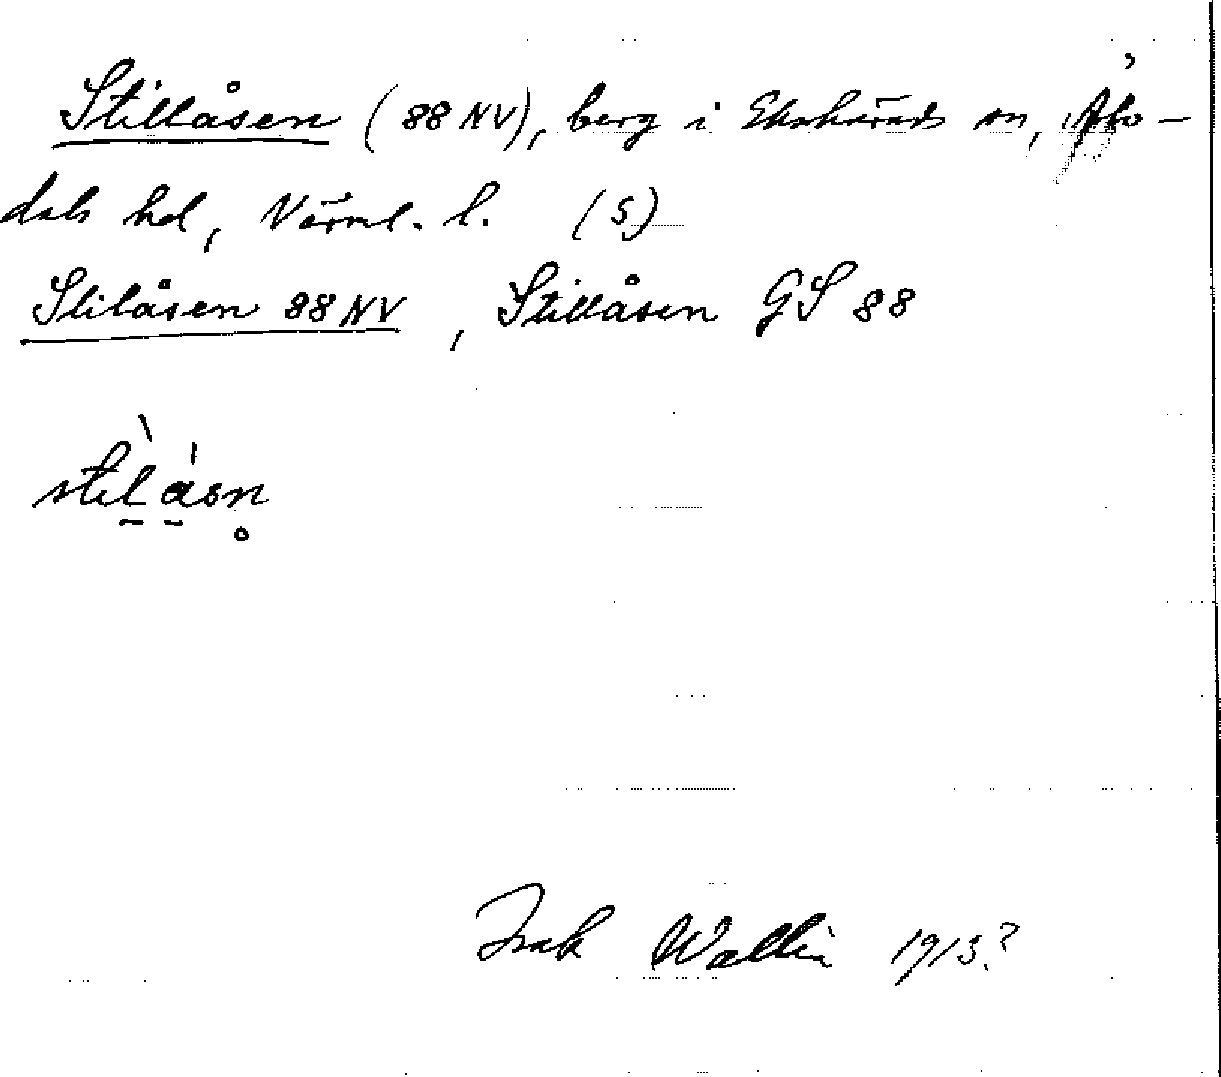 Stillåsen (88 NV), berg i Ekshärads sn, Älv-
dals hd, Värml. l. (S)
Stilåsen 88 NV, Stillåsen GS 88
stìlásn̥
Isak Wallin 1913?